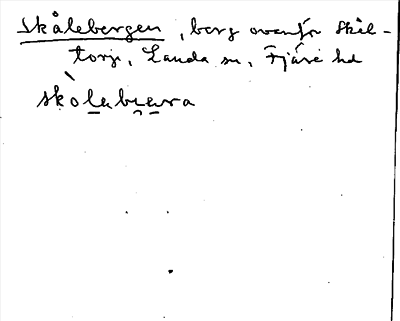 Skålebergen, berg ovanför Skål-
torp, Landa sn, Fjäre hd
skòlabɩæra